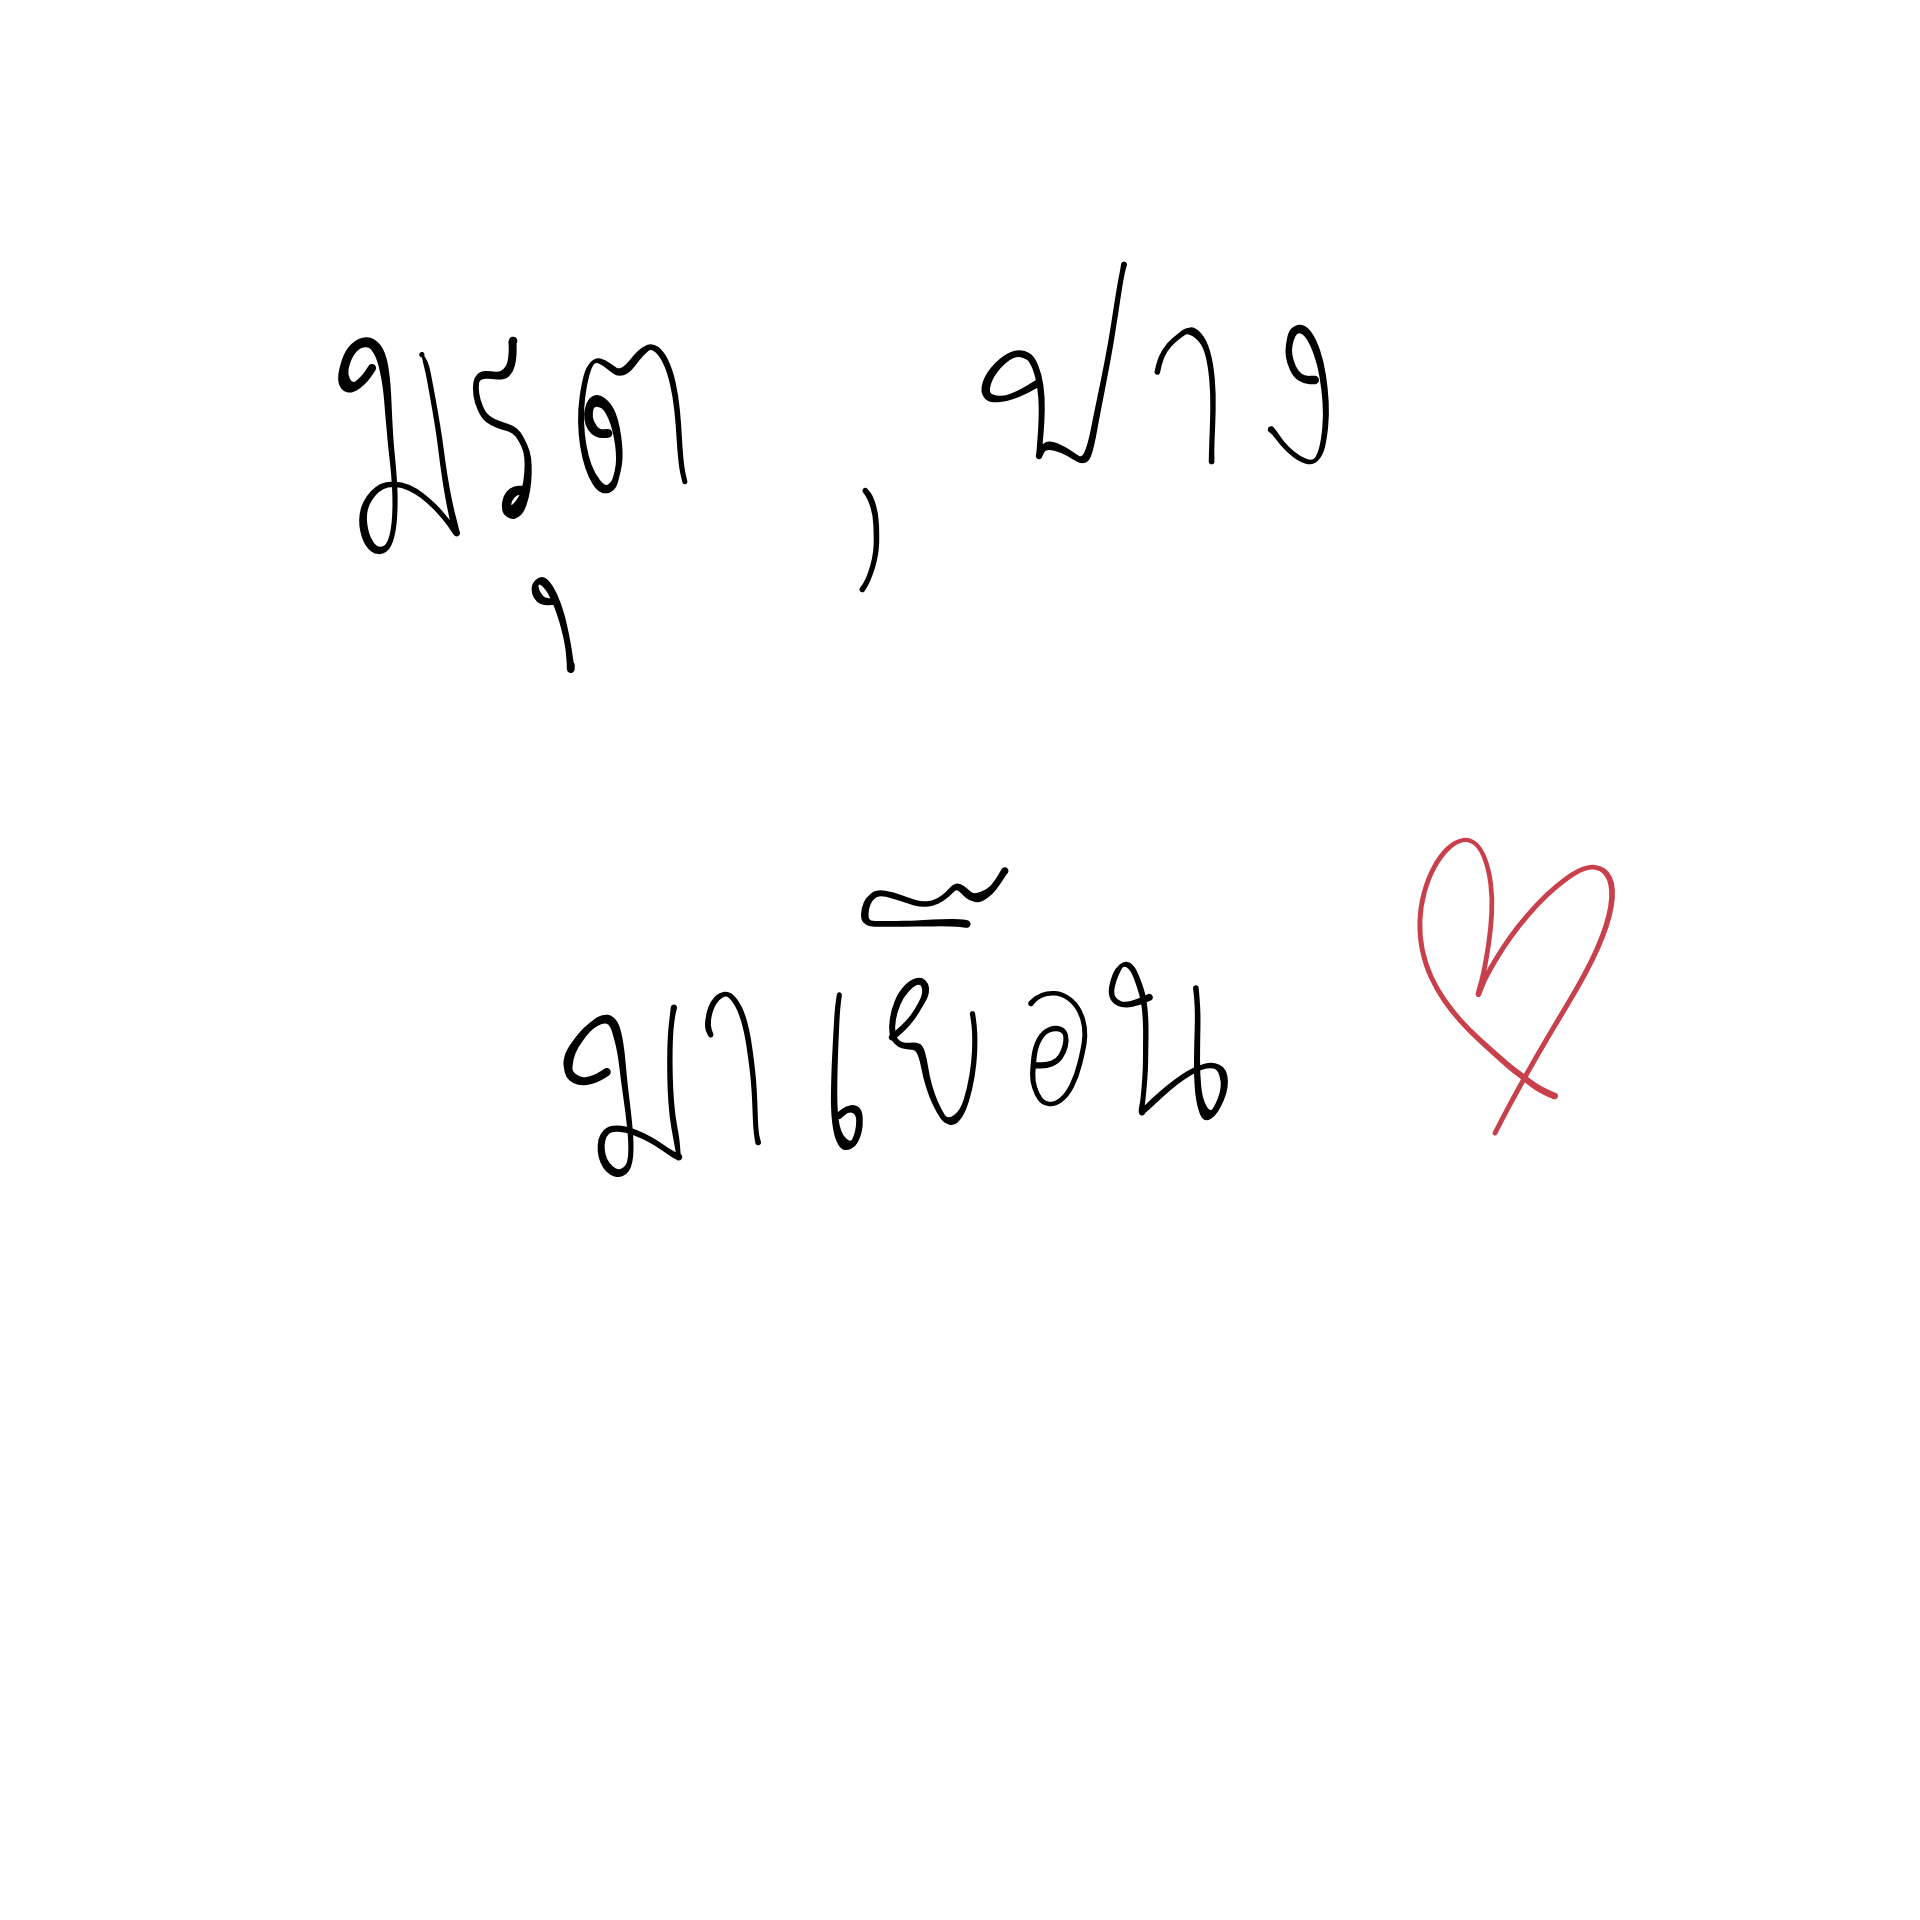 มรุต , ปาง
มาเยือน